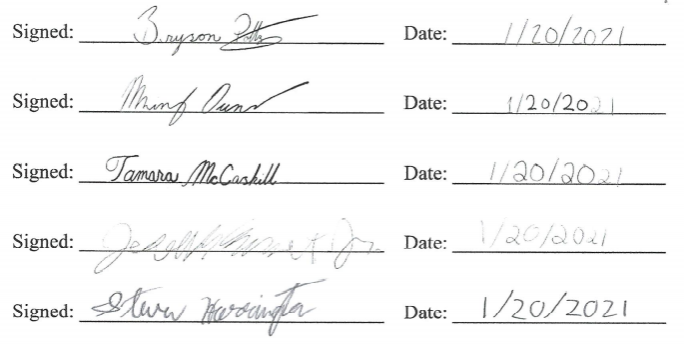 Signed: Bryson Potts Date: 1/20/2021
Signed: Dunn Date: 1/20/2021
Signed: Tamara McCaskill Date: 1/20/2021
Signed: Jr. Date: 1/20/2021
Signed: Steven Harrington Date: 1/20/2021